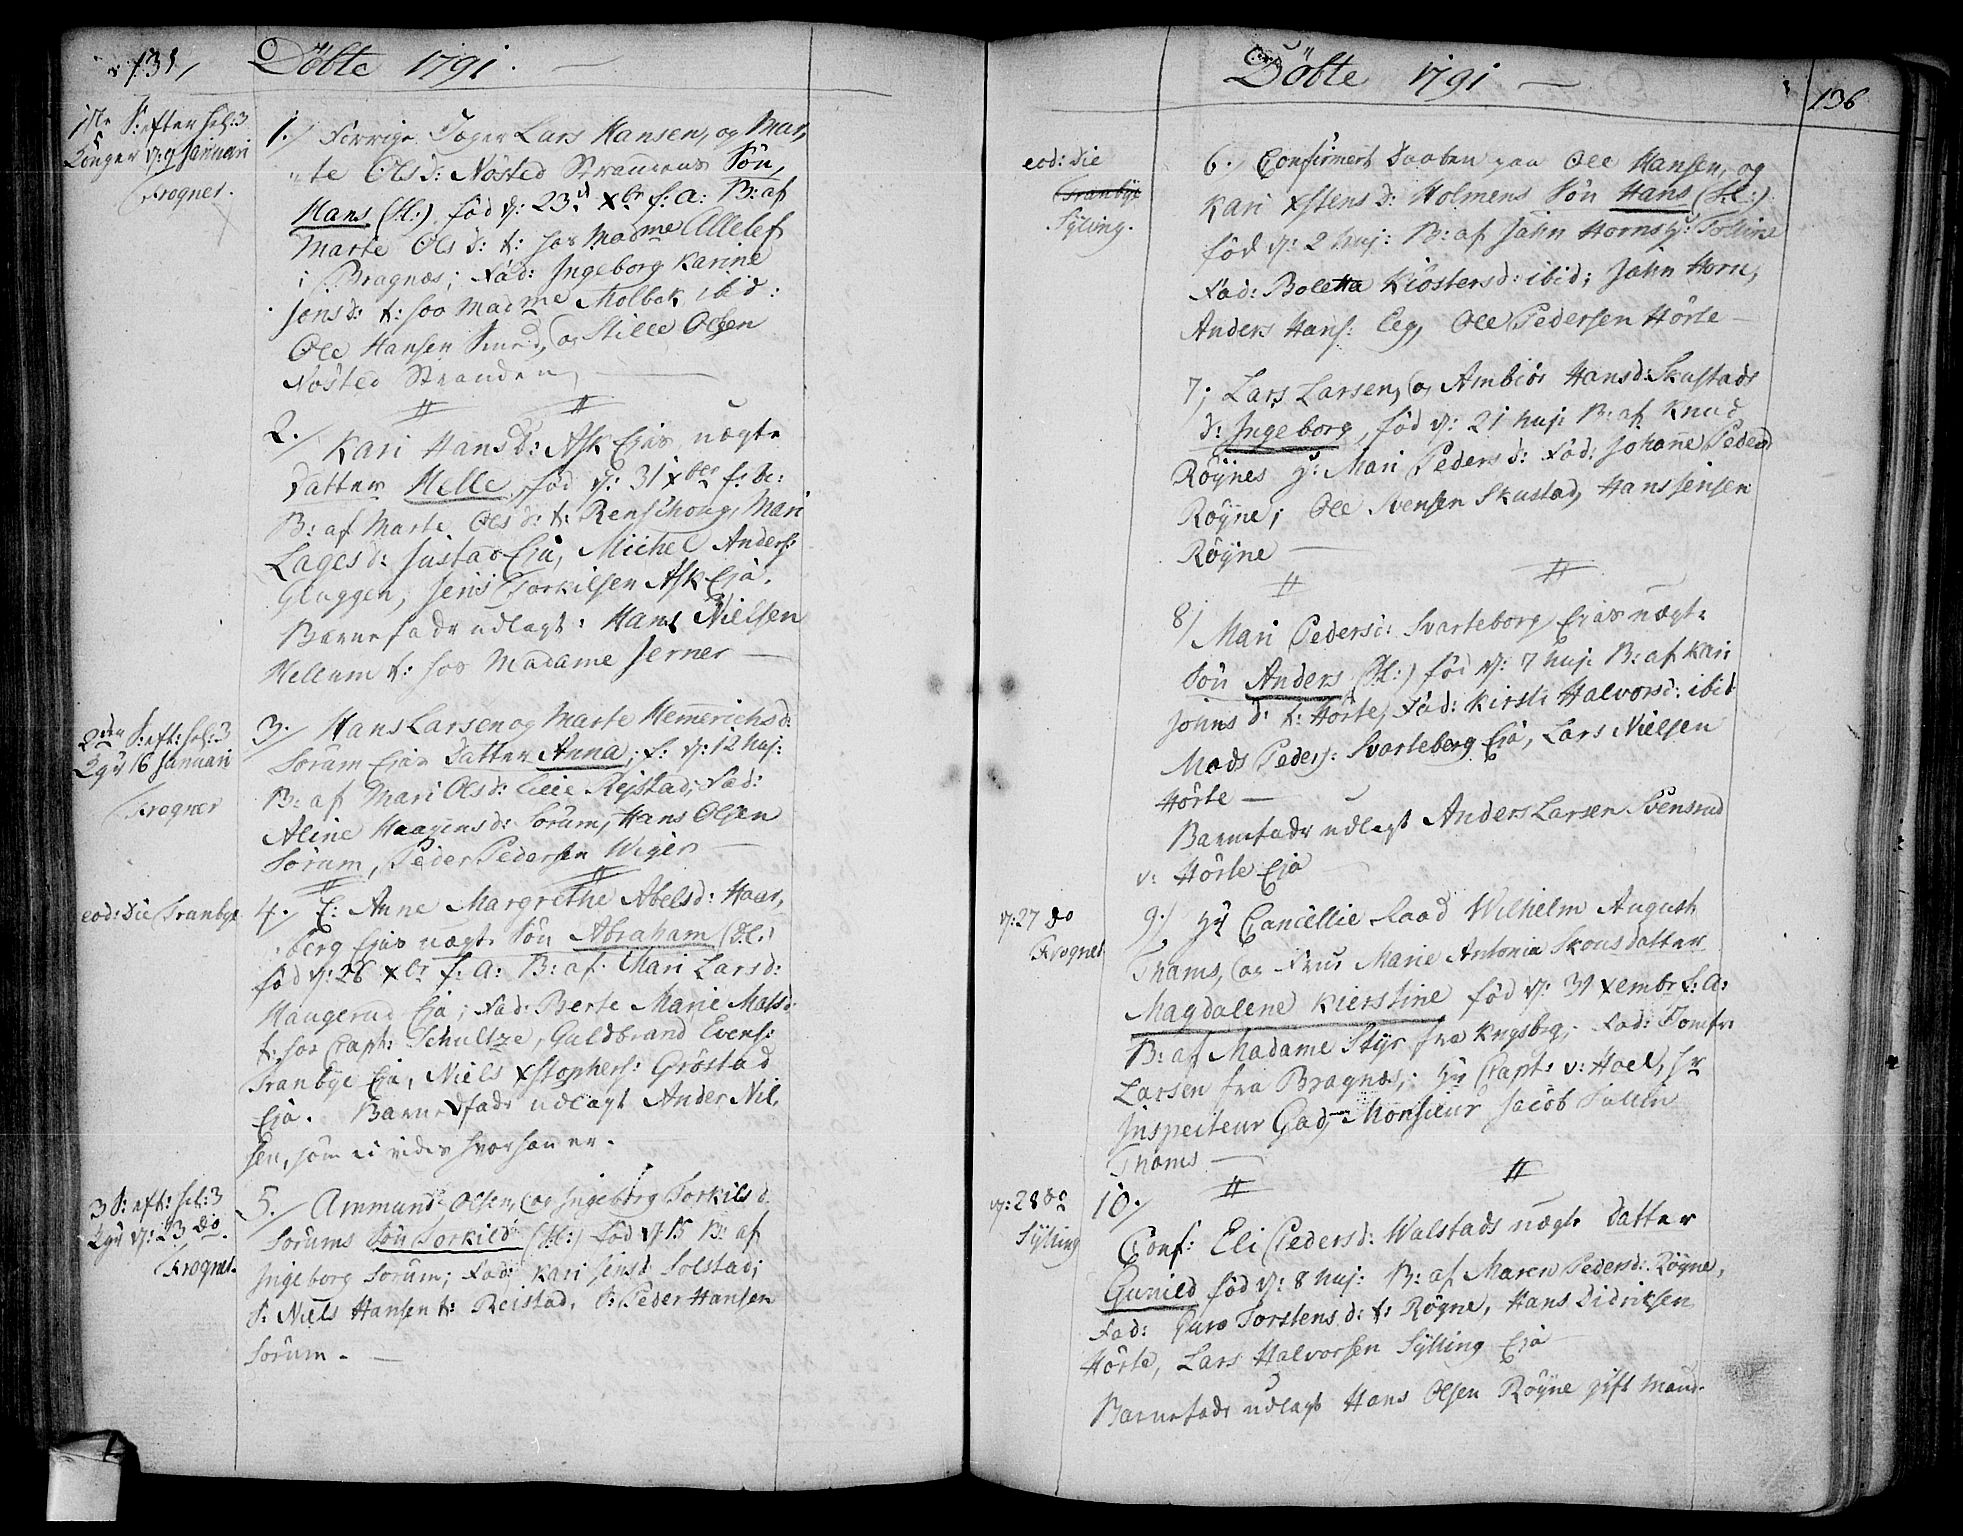 131,
Döbte 1791.
1ste S: efter hel: 3
Konger d: 9 Januari
Frogner.
1./ Forrige Jæger Lars Hansen, og Mar,
te Olsd: Nösted Strandens Sön,
Hans (H:) föd d: 23d xbr f: a: B: af
Marte Olsd: t: hos Madme Ellelef
i Bragnæs; Fad: Ingeborg Karine
Jensd: t: hos Madme Molbek ibid:
Ole Hansen Smed, og Stille Olsen
Nösted Stranden,
2./ Kari Hansd: Ask Ejes uægte
Datter Helle, föd d: 31 xbr f: a:
B: af Marte Olsd: t: Renschoug, Mari
Lagesd: Justad Eje, Michel Anders:
Gluggen, Jens Torkilsen Ask Eje.
Barnefader udlagt: Hans Nielsen
Hellum t: hos Madame Jerner
2den S: eft: hel: 3
Kgr 16 Januari
Frogner
3./ Hans Larsen og Marte Hemerichsd:
Sorum Ejes Datter Anna; f: d: 12 huj:
B: af Mari Olsd: Reistad; Fad:
Aline Haagensd: Sorum, Hans Olsen
Sorum, Peder Pedersen Wiger
eod: die Tranbye
4./ C: Anne Margrethe Abelsd: Haar,
berg Ejes uægte Sön Abraham (H:)
föd d: 26 xbr f: a: B: af Mari Larsd:
Haugerud Eje; Fad: Berte Marie Matsd:
t: hos Capt: Schultze, Guldbrand Evens:
Tranbye Eje, Niels xstophers: Gröstad
Eje. Barnefader udlagt Ander Niel,
sen, som ei vides hvor han er.
3 S: eft: hel: 3
Kgr d: 23 do
Frogner.
5./ Ammund Olsen, og Ingeborg Torkilsd:
Sorums Sön Torkild (H:) föd d: 15 B: af
Ingeborg Sorum; Fad: Kari Jensd: Solstad;
S: Niels Hansen t: Reistad, S: Peder Hansen
Sorum.
Döbte 1791
136
eod: die
Tranbye
Sylling.
6./ Confirmert Daaben paa Ole Hansen, og
Kari xstensd: Holmens Sön Hans (H:)
föd d: 2 huj: B: af Jahn Horns H:
Fad: Boletta Kiöstersd: ibid; Jahn Horn,
Anders Hans: Eeg, Ole Pedersen Hörte
7; Lars Larsen, og Ambiör Hansd: Skustads
d: Ingeborg, föd d: 21 huj: B: af Knud
Röynes H: Mari Pedersd: Fad: Johanne Pedersd
Röyne; Ole Svensen Skustad, Hans Jensen
Röyne
8/ Mari Pedersd: Svarteborg Ejes uægte
Sön Anders (H:) föd d: 7 huj: B: af Kari
Johnsd: t: Hörte, Fad: Kirsti Halvorsd: ibid
Mads Peders: Svarteberg Eje, Lars Nielsen
Hörte
Barnefader udlagt Anders Larsen Svensrud
v: Hörte Eje
d: 27 do
Frogner
9./ Hr Cancellie Raad Wilhelm August
Thams, og Frue Marie Antonia Skous datter
Magdalene Kierstine föd d: 31 xembr f: a:
B: af Madame Styr fra Kngsbrg; Fad: Jomfr:
Larsen fra Bragnæs,: Hr Capt: v: Hoel, Hr
Inspecteur Gad, Monsieur Jacob
Thams
d: 28 do
Sylling
10./
Conf: Eli Pedersd: Walstads uægte Datter
Gunild föd d: 8 huj: B: af Maren Pedersd: Röyne,
Fad: Guro Torstensd: t: Röyne, Hans Didriksen
Hörte, Lars Halvorsen Sylling Eje
Barnefader udlagt Hans Olsen Röyne gift Mand.